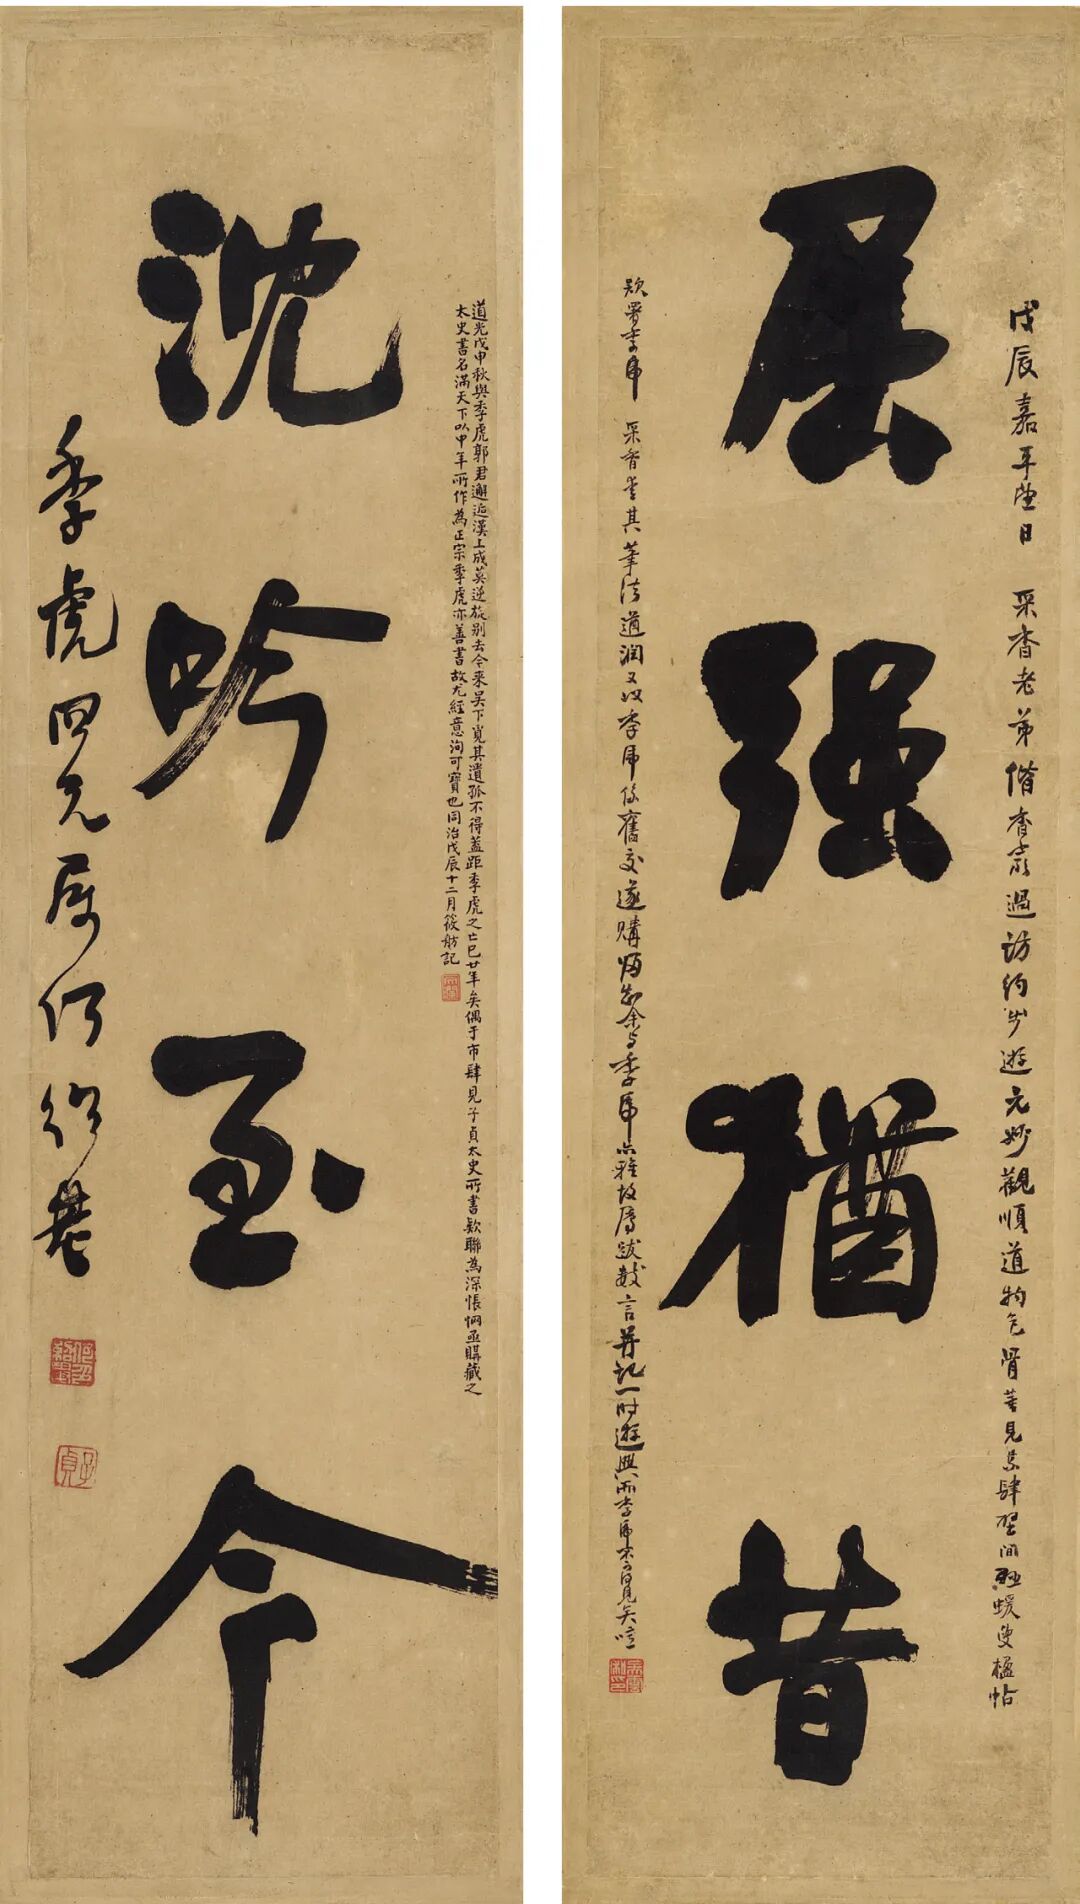 戊辰嘉平望日 采香老弟偕香嚴過訪約步遊元妙觀順道物色骨董見京肆壁間懸蝯叟楹帖
屈强猶昔
款署季虎 采香愛其筆法遒潤又以季虎係舊交遂購歸知余與季虎亦雅故屬跋數言并記一時遊興而季虎不可見矣噫
道光戊申秋與季虎郭君邂逅漢上成莫逆旋别去今來吴下覓其遺孤不得蓋距季虎之亡已廿年矣偶于市肆見子貞太史所書款聯為深悵惘亟購藏之
太史書名滿天下以中年所作為正宗季虎亦善書故尤經意洵可寶也同治戊辰十二月筱舫記
沈吟至今
季虎四兄屬何紹基
何紹基
子貞